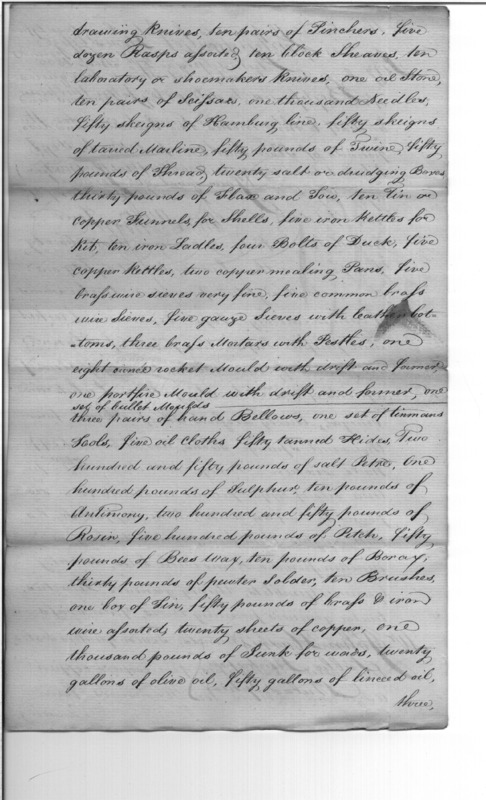 drawing Knives, ten pairs of Pinchers, five
dozen Rasps assorted, ten block Sheaves, ten
laboratory or shoemakers knives, one oil Stone,
ten pairs of Scissars, one thousand Needles,
fifty skeigns of Hamburg line, fifty skeigns
of tarred Marline, fifty pounds of Twine, fifty
pounds of Thread, twenty salt or drudging Boxes
thirty pounds of Flax and Tow, ten Tin or
copper Funnels, for Shells, five iron Kettles for
Kit, ten iron Ladles, four Bolts of Duck, five
copper Kettles, two copper mealing Pans, five
brass wire sieves very fine, five common brass
wire Sieves, five gauze Sieves with leather bot-
-toms, three brass Mortars with Pestles, one
eight ounce rocket Mould with drift and former,
one portfire Mould with drift and former, one
set of bullet Moulds
three pairs of hand Bellows, one set of tinmans
Tools, five oil Cloths fifty tanned Hides, Two
hundred and fifty pounds of salt Petre, One
hundred pounds of Sulphur, ten pounds of
Antimony, two hundred and fifty pounds of
Rosin, five hundred pounds of Pitch, fifty
pounds of Bees Wax, ten pounds of Borax,
thirty pounds of pewter Solder, ten Brushes,
one box of Tin, fifty pounds of brass & iron
wire assorted, twenty sheets of copper, one
thousand pounds of Junk for wads, twenty
gallons of olive oil, fifty gallons of linceed oil,
three,